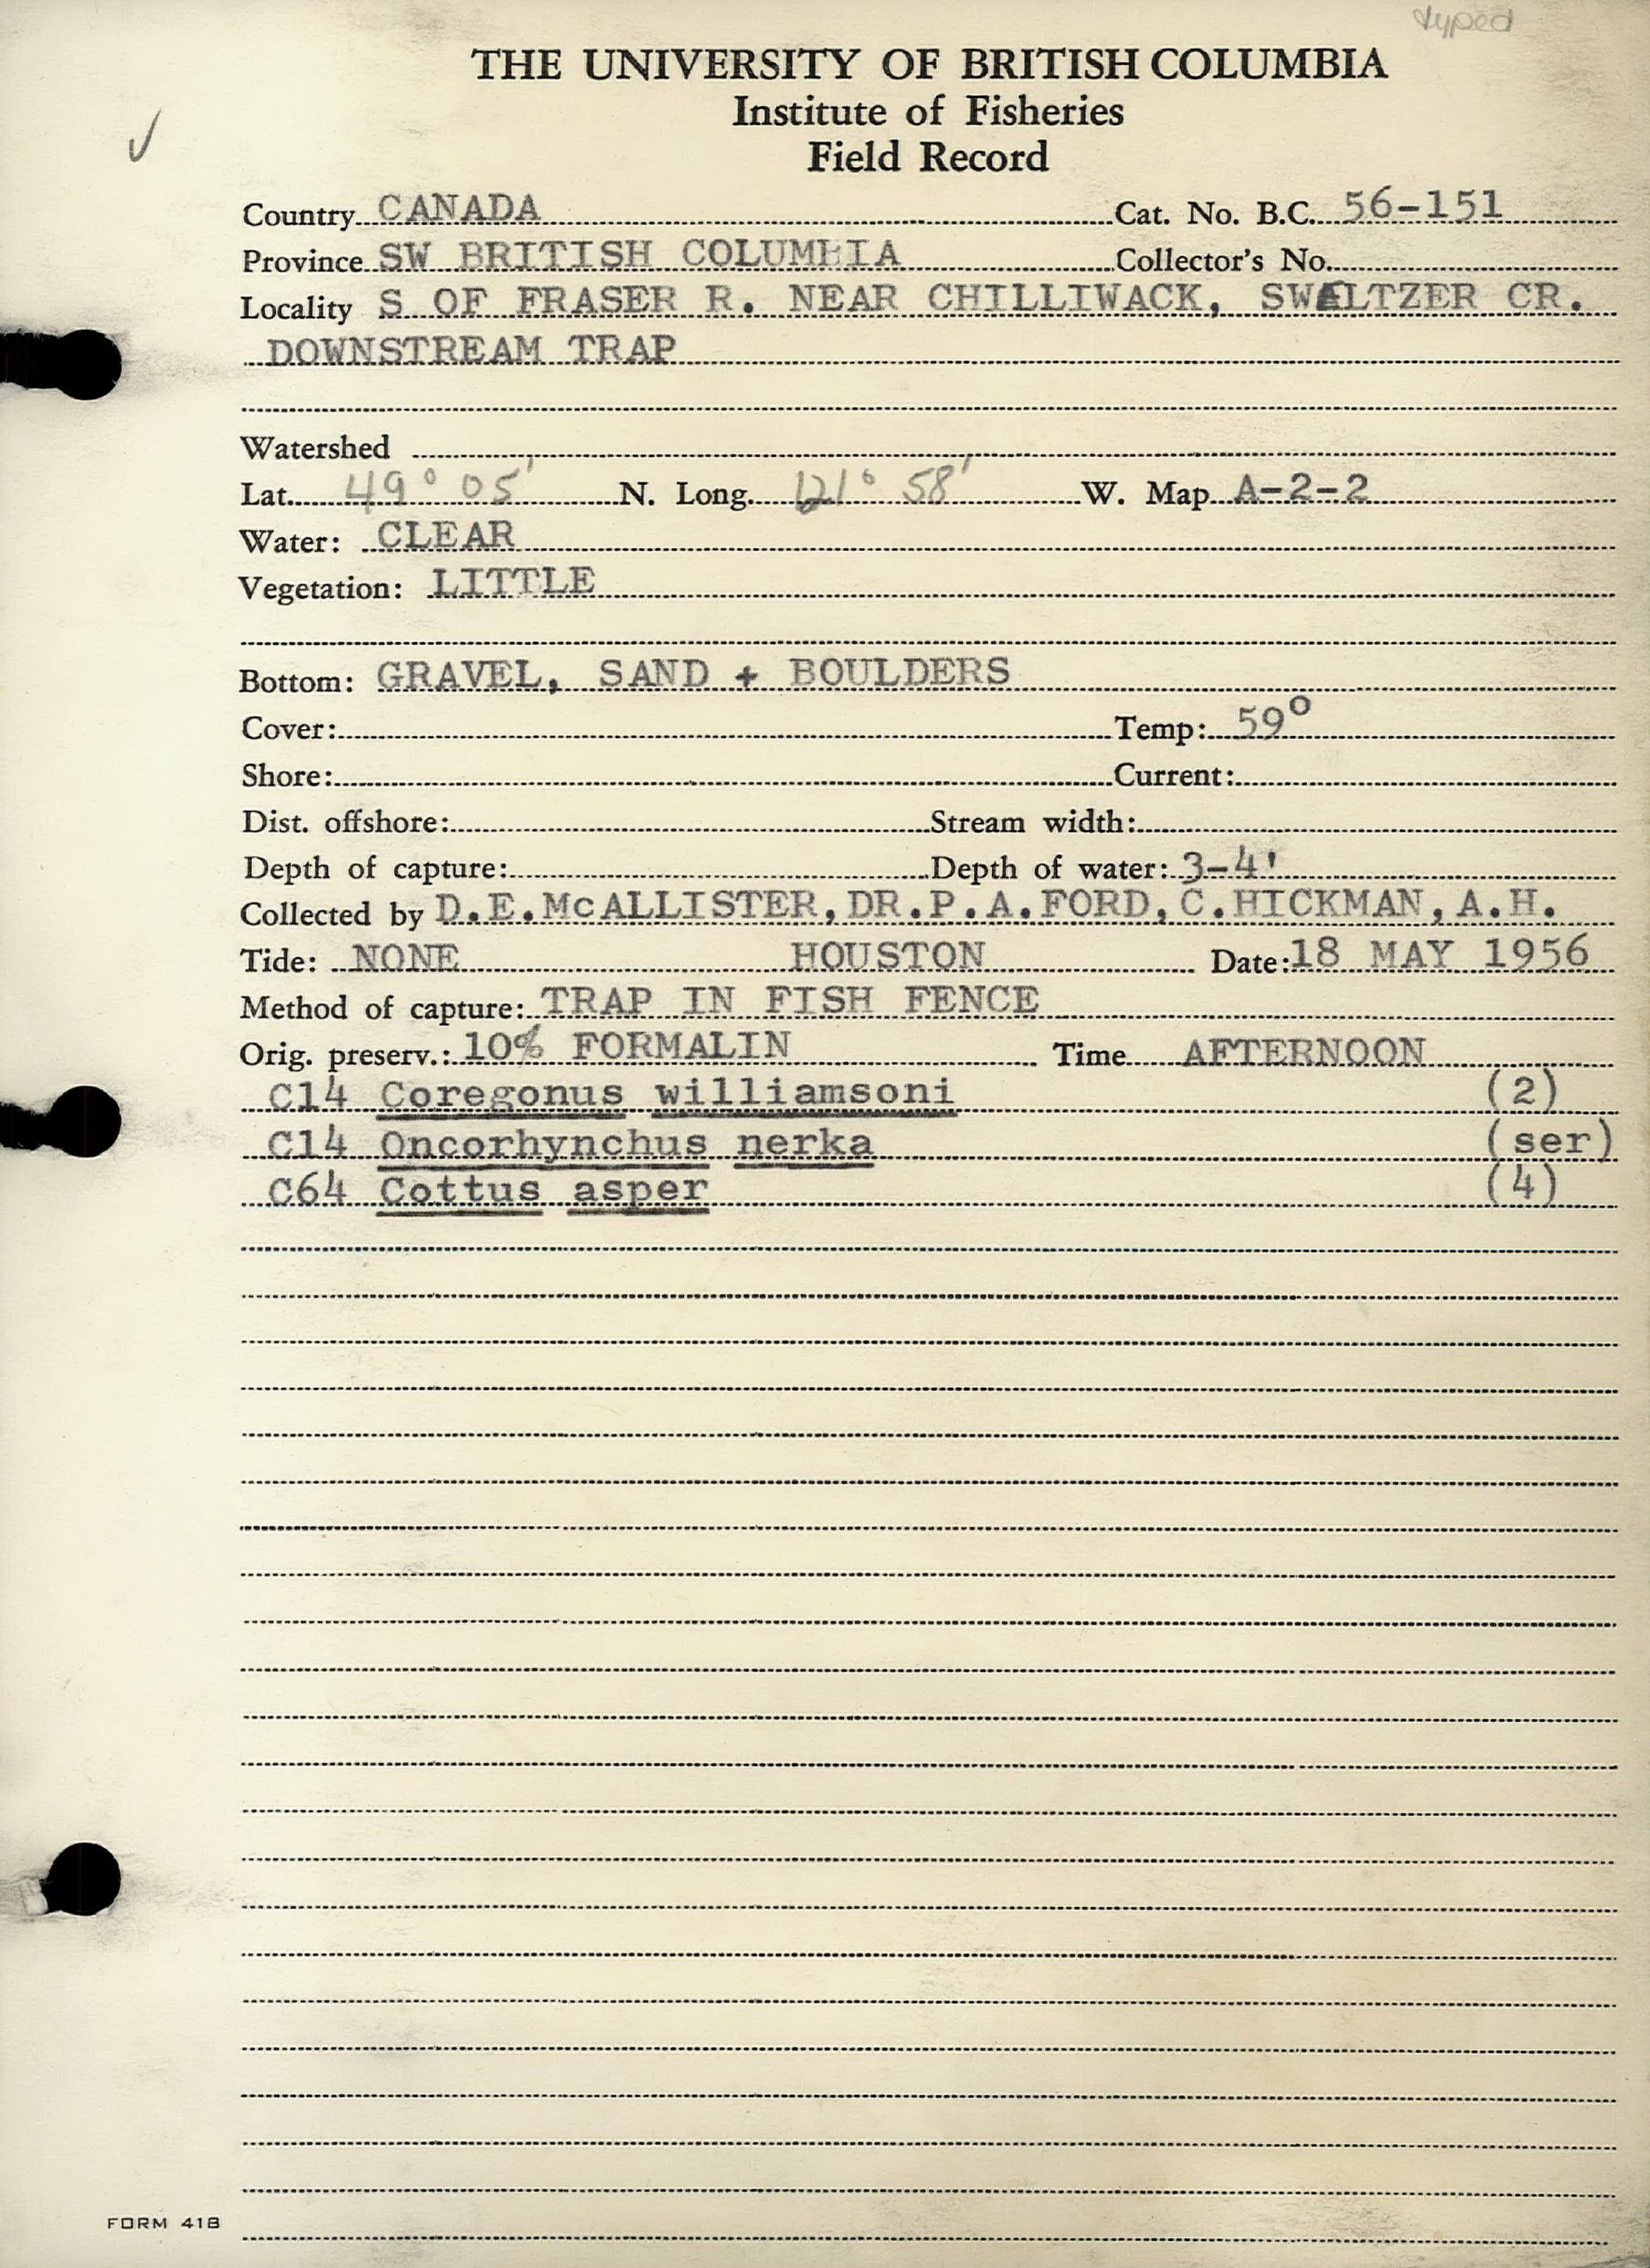 typed
THE UNIVERSITY OF BRITISH COLUMBIA
Institute of Fisheries
Field Record
Country CANADA Cat. No. B.C. 56-151
Province SW BRITISH COLUMBIA Collector's No.
Locality S OF FRASER R. NEAR CHILLIWACK, SWELTZER CR.
DOWNSTREAM TRAP
Watershed
Lat. 49° 05' N. Long. 121° 58' W. Map A-2-2
Water: CLEAR
Vegetation: LITTLE
Bottom: GRAVEL, SAND + BOULDERS
Cover: Temp: 59°
Shore: Current:
Dist. offshore: Stream width:
Depth of capture: Depth of water: 3-4'
Collected by D.E.McALLISTER, DR.P.A.FORD, C.HICKMAN, A.H.
Tide: NONE HOUSTON Date: 18 MAY 1956
Method of capture: TRAP IN FISH FENCE
Orig. preserv.: 10% FORMALIN Time AFTERNOON
C14 Coregonus williamsoni (2)
C14 Oncorhynchus nerka (ser)
C64 Cottus asper (4)
FORM 41B